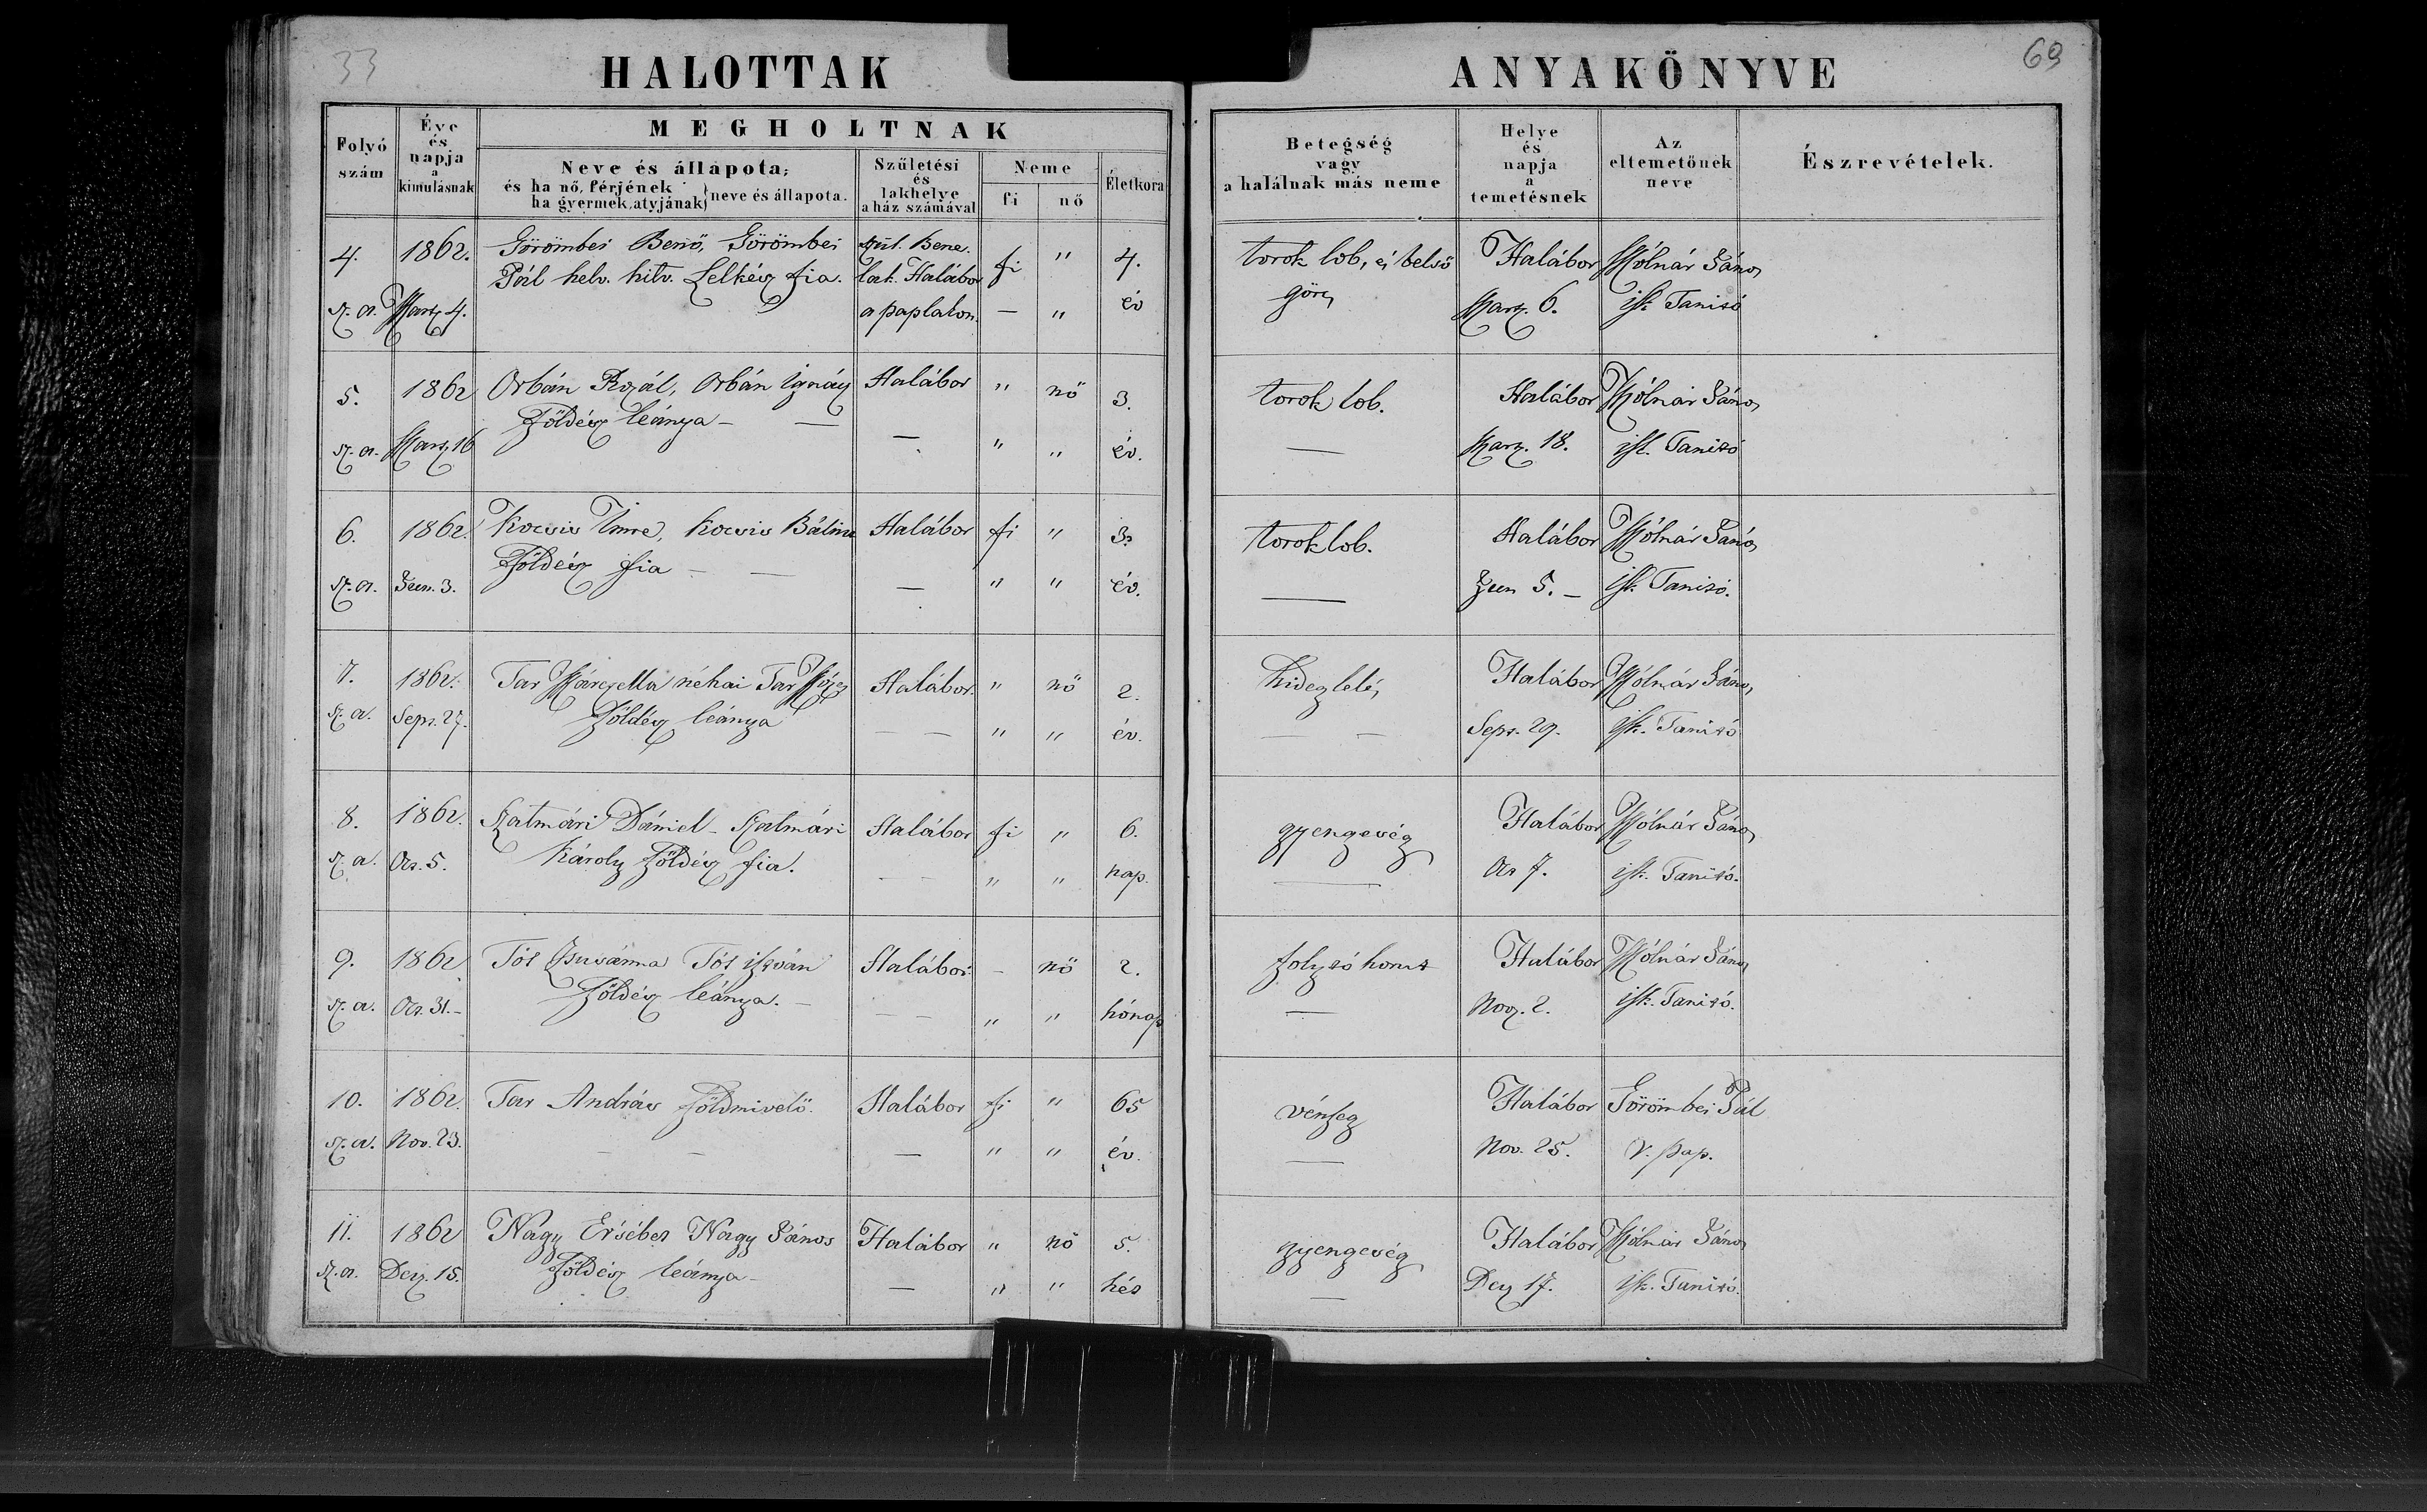 33
HALOTTAK
ANYAKÖNYVE
69
Folyó szám
Éve és napja a kimulásnak
MEGHOLTNAK
Neve és állapota,
és ha nő, férjének
ha gyermek, atyjának
neve és állapota.
Születési és lakhelye a ház számával
Neme
fi
nő
Életkora
Betegség vagy a halálnak más neme
Helye és napja a temetésnek
Az eltemetőnek neve
Észrevételek.
4. 1862. Görömbei Benő, Görömbei Szül. Bene. fi " 4. torok lob, és belső Halábor Mólnár János
Pál helv. hitv. Lelkész fia. lak. Halábor görcs
sz. a. Marz 4. a paplakon. — " év Marz. 6. isk Tanító
5. 1862 Orbán Rozál, Orbán Ignácz Halábor " nő 3. torok lob. Halábor Mólnár János
földész leánya — —
sz. a. Marz 16 — " " év. — Marz. 18. isk. Tanító
6. 1862. Kocsis Imre, Kocsis Bálint Halábor fi " 3. torok lob. Halábor Mólnár János
Földész fia — —
sz. a. Jun. 3. — " " év. — Jun 5. — isk. Tanító.
7. 1862. Tar Márczella néhai Tar Mózes Halábor. " nő 2. hidegleles Halábor Mólnár János
sz. a. Sept. 27. földész leánya — — " " év. — — Sept. 29. isk. Tanító
8. 1862. Szatmári Dániel – Szatmári Halábor fi " 6. gyengeség Halábor Mólnár János
sz. a. Oct. 5. Károly földész fia. — — " " nap. — Oct 7. isk. Tanító.
9. 1862 Tót Zsusánna Tót istván Halábor. – nő 2. folytó horut Halábor Mólnár János
sz. a. Oct. 31. – földész leánya. – — — " " hónap — Nov. 2. isk. Tanító.
10. 1862. Tar András földmivelő. Halábor fi " 65 vénség Halábor Görömbei Pál
sz. a. Nov. 23. — — — " " év. — Nov. 25. r. pap.
11. 1862 Nagy Ersébet Nagy János Halábor " nő 5. gyengeség Halábor Mólnár János
sz. a. Dez. 15. földész leánya – — " " hét — Dez 17. isk. Tanító.